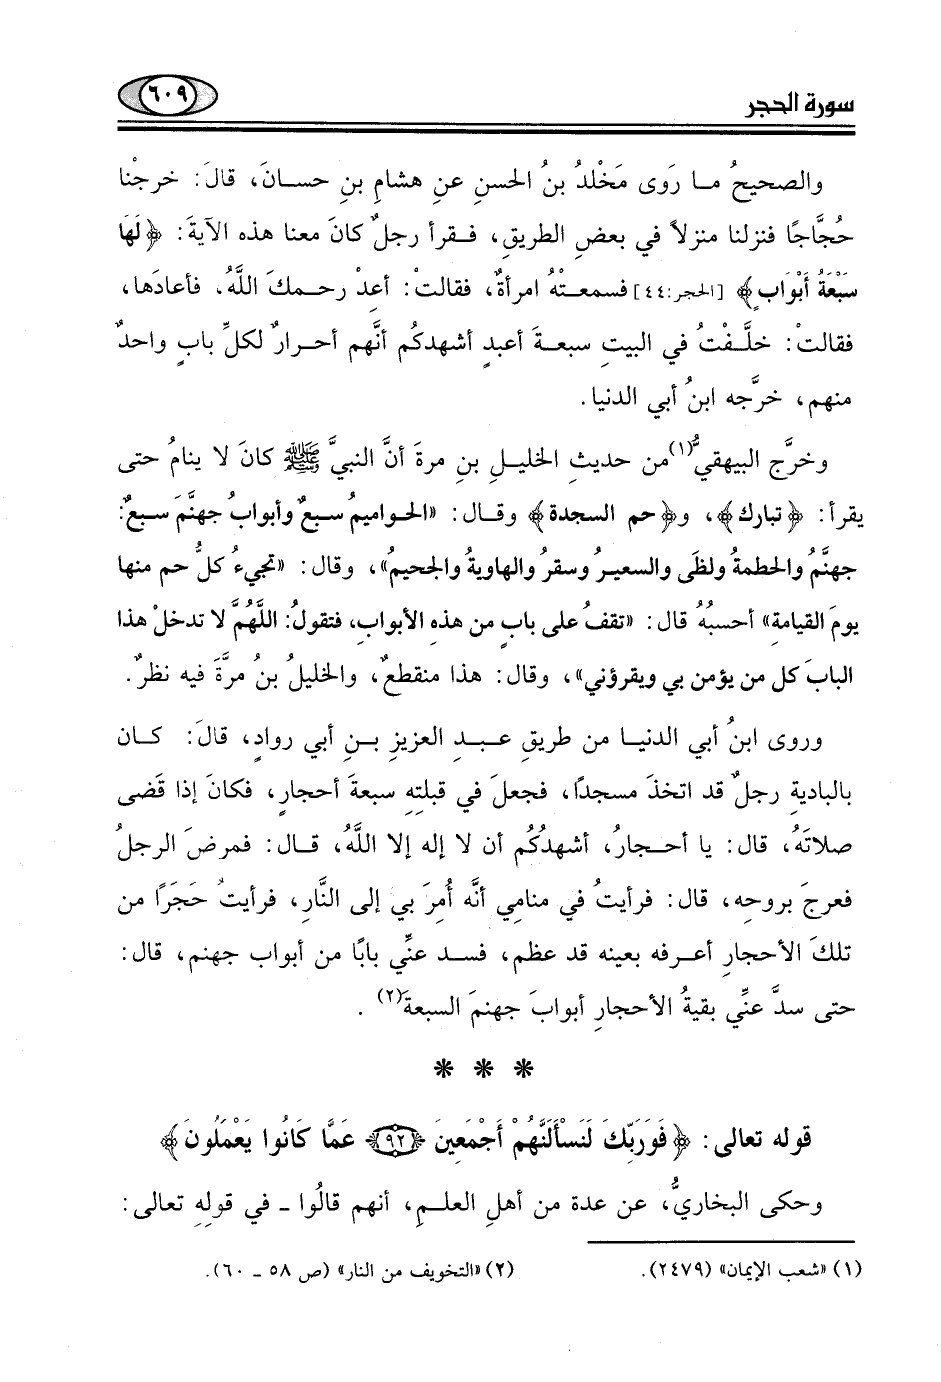 سورة الحجر
٦٠٩
والصحيحُ ما رَوى مَخْلدُ بنُ الحسنِ عن هشامِ بنِ حسانَ، قالَ: خرجْنا
حُجَّاجًا فنزلنا منزلاً في بعضِ الطريقِ، فقرأ رجلٌ كانَ معنا هذه الآيةَ: ﴿لَهَا
سَبْعَةُ أَبْوَابٍ﴾ [الحجر:٤٤] فسمعتْهُ امرأةٌ، فقالتْ: أعدْ رحمكَ اللَّهُ. فأعادَها،
فقالتْ: خلَّفْتُ في البيتِ سبعةَ أعبدٍ أشهدكُم أنَّهم أحرارٌ لكلِّ بابٍ واحدٌ
منهم، خرَّجه ابنُ أبي الدنيا.
وخرَّج البيهقيُّ(١)من حديثِ الخليلِ بنِ مرةَ أنَّ النبيَّ ﷺ كانَ لا ينامُ حتى
يقرأ: ﴿تبارك﴾، و﴿حم السجدة﴾ وقال: «الحواميمُ سبعٌ وأبوابُ جهنَّمَ سبعٌ:
جهنَّمُ والحطمةُ ولظَى والسعيرُ وسقرُ والهاويةُ والجحيمُ»، وقال: «تجيءُ كلُّ حم منها
يومَ القيامةِ» أحسبُهُ قال: «تقفُ على بابٍ من هذه الأبوابِ، فتقولُ: اللَّهُمَّ لا تدخلْ هذا
البابَ كل من يؤمن بي ويقرؤني»، وقال: هذا منقطعٌ، والخليلُ بنُ مرَّةَ فيه نظرٌ.
وروى ابنُ أبي الدنيا من طريقِ عبدِ العزيزِ بنِ أبي روادٍ، قالَ: كان
بالباديةِ رجلٌ قد اتخذَ مسجدًا، فجعلَ في قبلتِهِ سبعةَ أحجارٍ، فكانَ إذا قضَى
صلاتَهُ، قال: يا أحجارُ، أشهدُكُم أن لا إله إلا اللَّهُ، قال: فمرضَ الرجلُ
فعرجَ بروحِهِ، قال: فرأيتُ في منامِي أنَّه أُمرَ بي إلى النَّارِ، فرأيتُ حَجَرًا من
تلكَ الأحجارِ أعرفه بعينه قد عظم، فسد عنِّي بابًا من أبواب جهنم، قال:
حتى سدَّ عنِّي بقيةُ الأحجارِ أبوابَ جهنمَ السبعةَ(٢) .
* * *
قوله تعالى: ﴿فَوَرَبِّكَ لَنَسْأَلَنَّهُمْ أَجْمَعِينَ ﴿٩٢﴾ عَمَّا كَانُوا يَعْمَلُونَ﴾
وحكى البخاريُّ، عن عدة من أهلِ العلمِ، أنهم قالُوا ـ في قولِهِ تعالى:
(١) «شعب الإيمان» (٢٤٧٩).
(٢) «التخويف من النار» (ص ٥٨ ـ ٦٠).